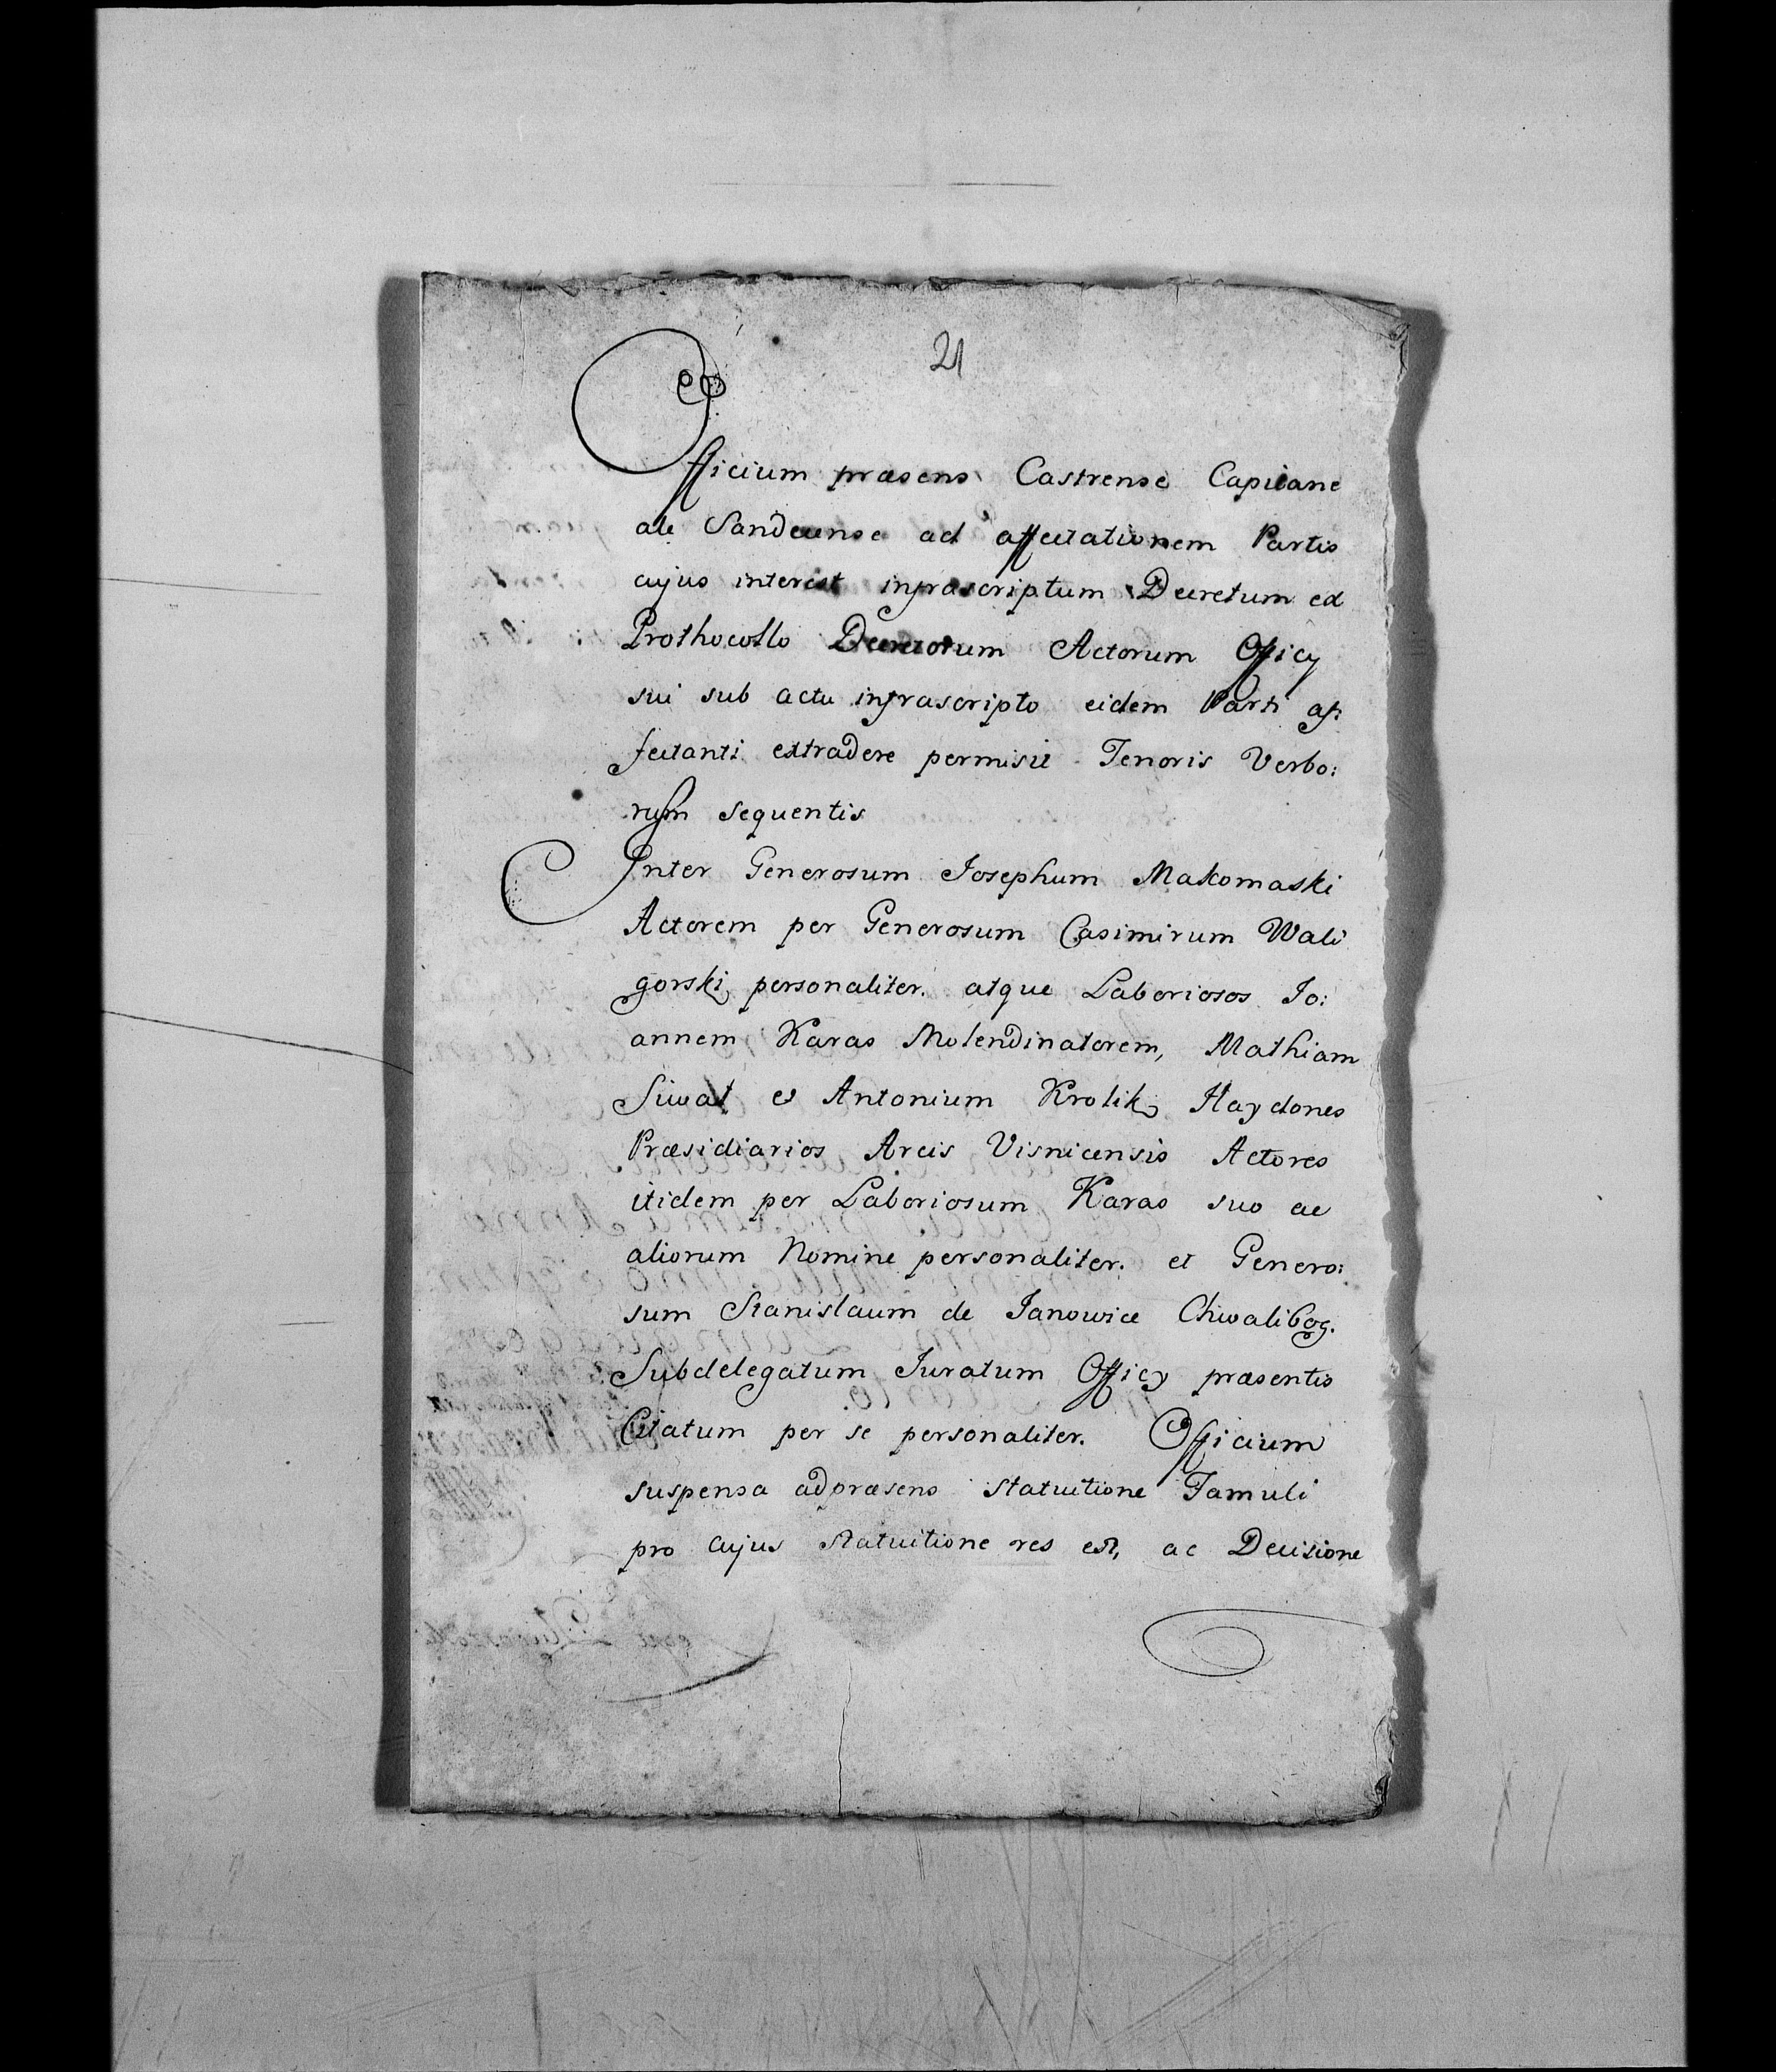 21
Officium præsens Castrense Capitane
ale Sandecense ad affectationem Partis
cujus interest infrascriptum Decretum ex
Prothocollo Decretorum Actorum Officy
sui sub actu infrascripto eidem Parti af:
fectanti extradere permisit Tenoris Verbo:
rum sequentis
Inter Generosum Josephum Makomaski
Actorem per Generosum Casimirum Wali
gorski personaliter. atque Laboriosos Jo:
annem Karas Molendinatorem, Mathiam
Siwal et Antonium Krolik Haydones
Præsidiarios Arcis Visnicensis Actores
itidem per Laboriosum Karas suo ac
aliorum Nomine personaliter. et Genero:
sum Stanislaum de Janowice Chwalibog.
Subdelegatum Juratum Officy præsentis
Citatum per se personaliter. Officium
suspensa adpræsens statuitione Famuli
pro cujus statuitione res est, ac Decisione